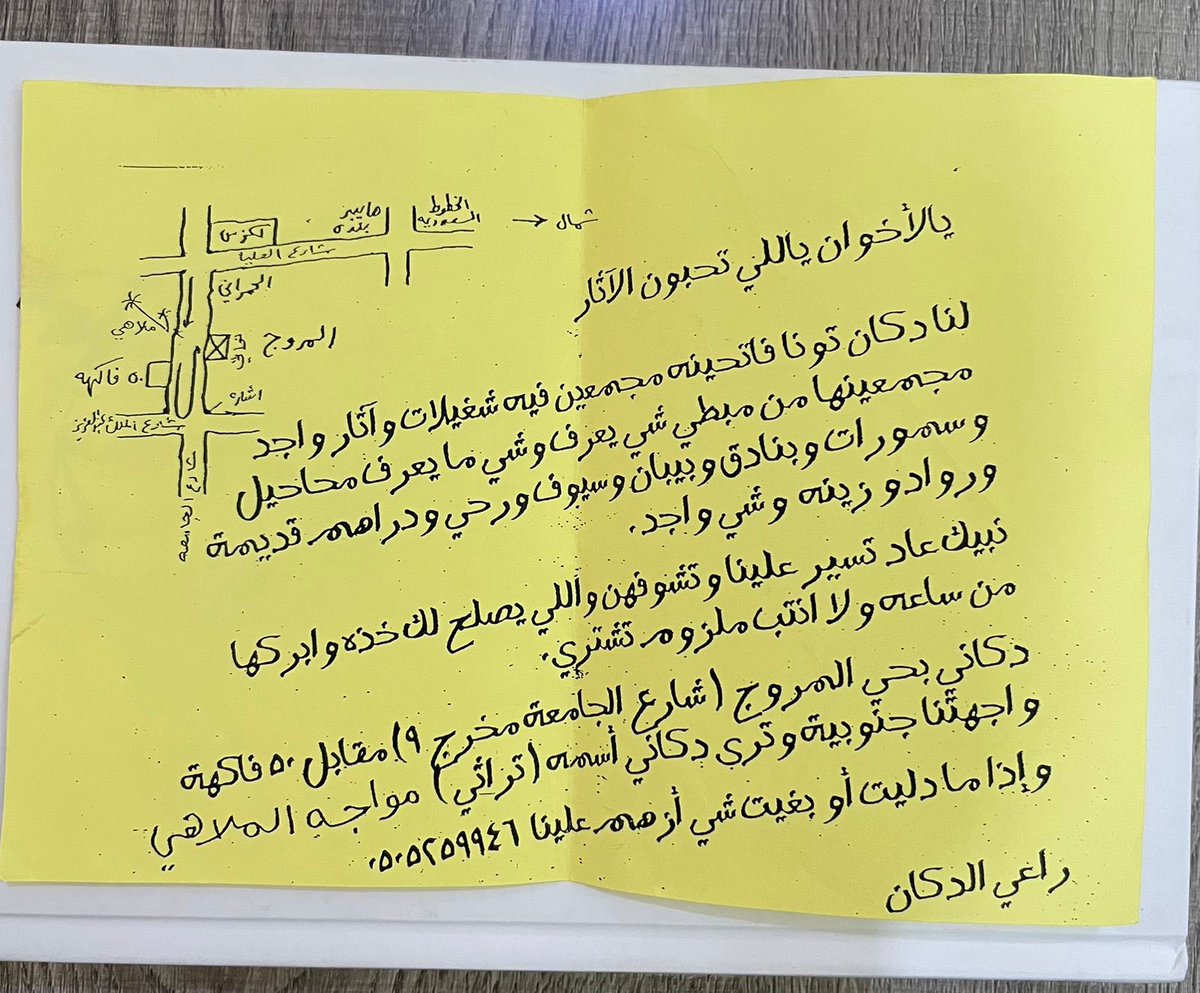 يالأخوان ياللي تحبون الآثار
لنا دكان تونا فاتحينه مجمعين فيه شغيلات وآثار واجد
مجمعينها من مبطي شي يعرف وشي ما يعرف محاحيل
وسمورات وبنادق وبيبان وسيوف ورحي ودراهم قديمة
ورواد وزينه وشي واجد.
نبيك عاد تسير علينا وتشوفهن واللي يصلح لك خذه وابركها
من ساعه ولا انتب ملزوم تشتري.
دكاني بحي المروج (شارع الجامعة مخرج ٩) مقابل ٥٠ فاكهة
واجهتنا جنوبية وترى دكاني أسمه (تراثي) مواجه الملاهي
وإذا ما دليت أو بغيت شي أزهم علينا ٠٥٠٥٢٥٩٩٤٦
راعي الدكان
شمال
الخطوط
السعودية
بنده
لكزس
شارع العليا
ملاهي
المروج
٥٠ فاكهة
اشارة
شارع الملك عبدالعزيز
شارع الجامعه